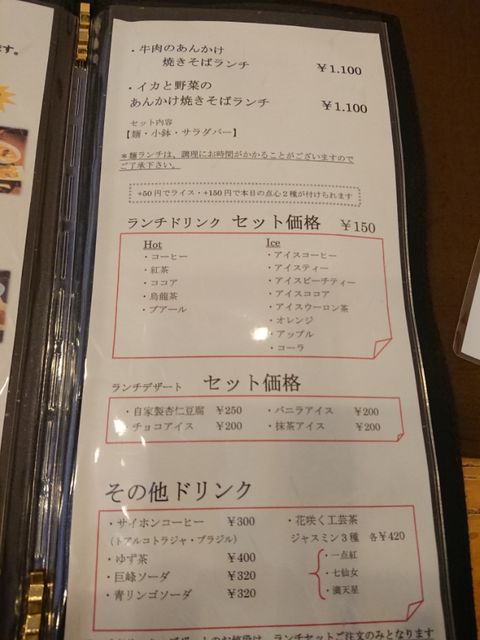 ます。
・牛肉のあんかけ
焼きそばランチ ￥1.100
・イカと野菜の
あんかけ焼きそばランチ ￥1.100
セット内容
【麺・小鉢・サラダバー】
＊麺ランチは、調理にお時間がかかることがございますので
ご了承下さい。
+50円でライス・+150円で本日の点心2種が付けられます
ランチドリンク セット価格 ￥150
Hot
・コーヒー
・紅茶
・ココア
・烏龍茶
・プアール
Ice
・アイスコーヒー
・アイスティー
・アイスピーチティー
・アイスココア
・アイスウーロン茶
・オレンジ
・アップル
・コーラ
ランチデザート セット価格
・自家製杏仁豆腐 ￥250 ・バニラアイス ￥200
チョコアイス ￥200 ・抹茶アイス ￥200
その他ドリンク
・サイホンコーヒー ￥300
(トアルコトラジャ・ブラジル)
・ゆず茶 ￥400
・巨峰ソーダ ￥320
・青リンゴソーダ ￥320
・花咲く工芸茶
ジャスミン3種 各￥420
・一点紅
・七仙女
・満天星
ランチセットご注文のみとなります